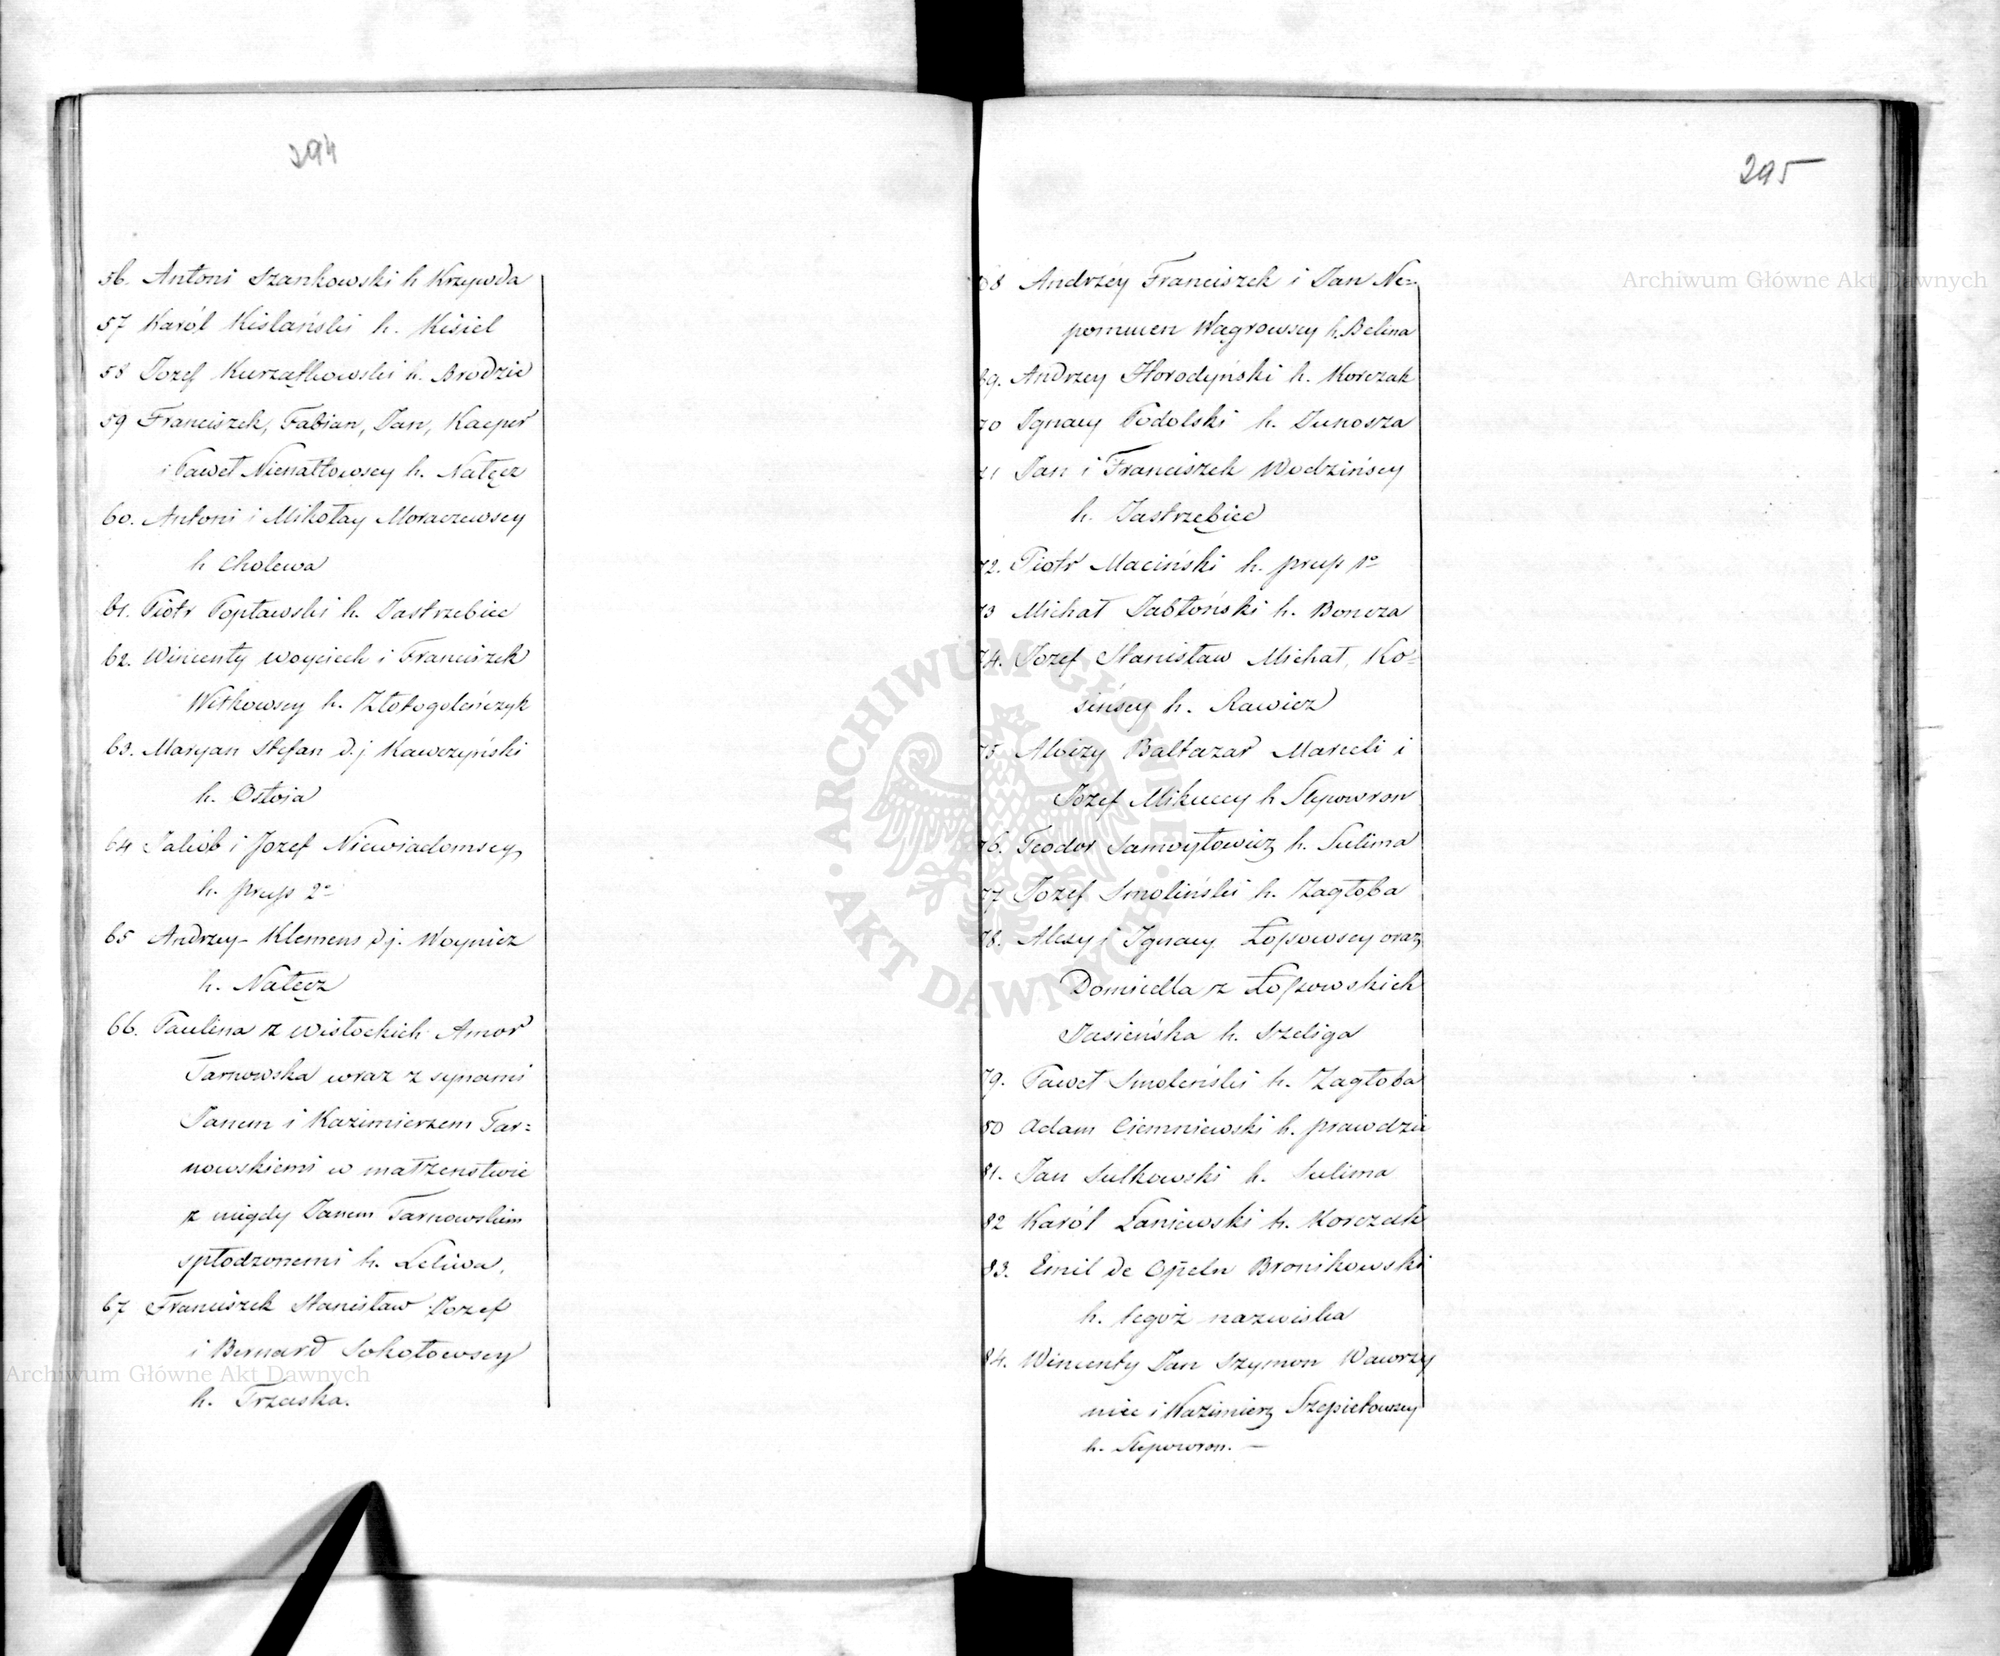 294
56. Antoni Szankowski h Krzywda
57 Karól Kislański h. Kisiel
58 Jozef Kurzątkowski h. Brodzic
59 Franciszek, Fabian, Jan, Kacper
i Paweł Nienałtowscy h. Nałęcz
60. Antoni i Mikołay Moraczewscy
h Cholewa
61. Piotr Popławski h. Jastrzebiec
62. Wincenty Woyciech i Franciszek
Witkowscy h. Złotogoleńczyk
63. Maryan Stefan d.j Kawczyński
h. Ostoja
64 Jakób i Jozef Niewiadomscy
h. prus 2o
65 Andrzey Klemens d j. Woynicz
h. Nałęcz
66. Paulina z Wisłockich Amor
Tarnowska wraz z synami
Janem i Kazimierzem Tar=
nowskiemi w małżenstwie
z niegdy Janem Tarnowskim
spłodzonemi h. Leliwa.
67 Franciszek Stanisław Jozef
i Bernard Sokołowscy
h. Trzaska.
295
68 Andrzéy Franciszek i Jan Ne=
pomucen Wągrowscy h. Belina
69. Andrzey Horodyński h. Korczak
70 Ignacy Podolski h. Junosza
71 Jan i Franciszek Wodzińscy
h. Jastrzębiec
72. Piotr Maciński h. prus 1o
73 Michał Jabłoński h. Boncza
74. Jozef Stanisław Michał Ko=
sińscy h. Rawicz
75 Aloizy Baltazar Marceli i
Jozef Mikuccy h Slepowron
76. Teodor Samoyłowicz h. Sulima
77 Jozef Smoliński h. Zagłoba
78. Alexy i Ignacy Łossowscy oraz
Domicella z Łossowskich
Jasieńska h. Szeliga
79. Paweł Smoleński h. Zagłoba
80 Adam Ciemniewski h. prawdzic
81. Jan Sulkowski h. Sulima
82 Karól Łaniewski h. Korczak
83. Emil de Opeln Bronikowski
h. tegoż nazwiska
84. Wincenty Jan Szymon Wawrzy
niec i Kazimierz Szepietowscy
h. Slepowron. —
Archiwum Główne Akt Dawnych
ARCHIWUM GŁÓWNE · AKT DAWNYCH ·
Archiwum Główne Akt Dawnych